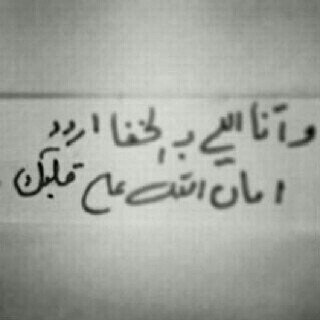 وآنا اللي بـ الخفا اردد
امان الله على قلبك